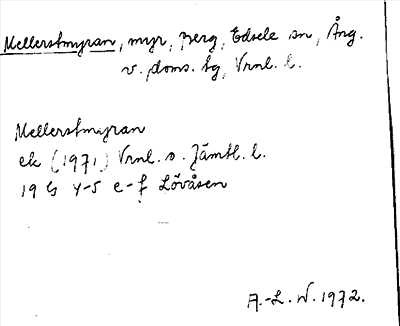 Mellerstmyran, myr, Berg, Edsele sn, Ång.
v. doms. tg, Vrnl. l.
Mellerstmyran
ek (1971) Vrnl. o. Jämtl. l.
19 G 4-5 e-f Lövåsen
A.-L. W. 1972.